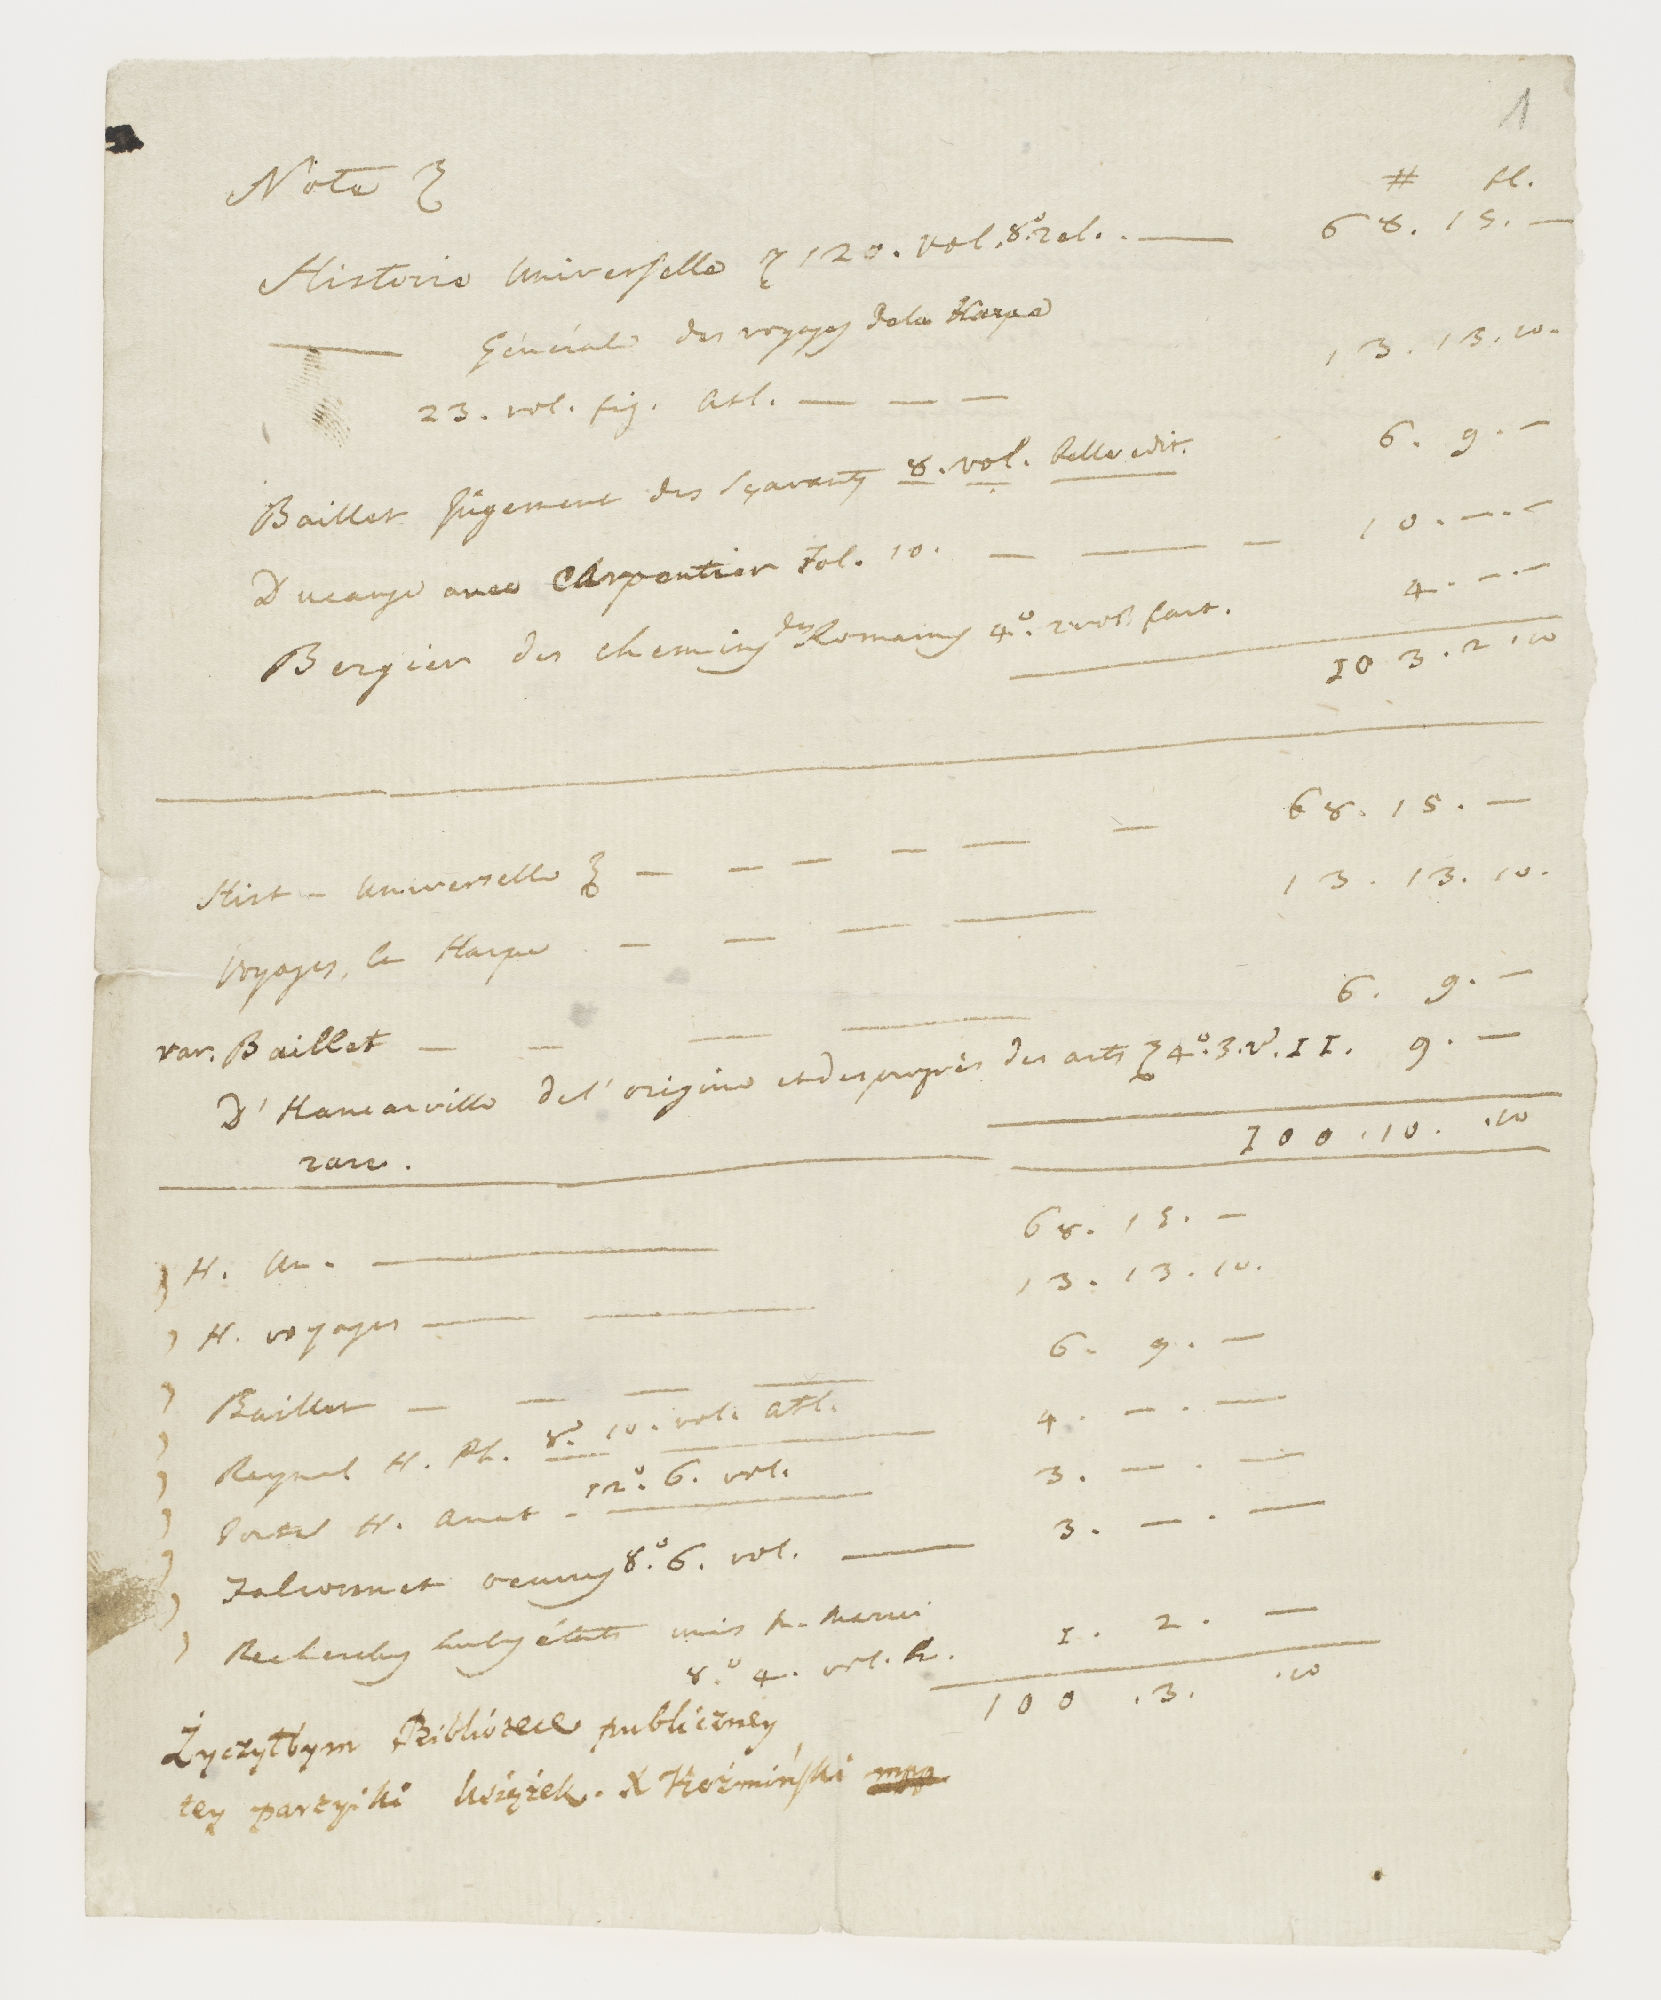 1
Note
# fl.
Histoire Universelle 120. vol. 8.º rel. . — 68. 15. —
— Générale des voyages de la Harpe
23. vol. fig. Atl. — — — 13. 13. 10.
Baillet Jugement des Sçavants 8. vol. belle edit. 6. 9. —
Ducange avec Carpentier Fol. 10. — — — 10. —. —
Bergier des chemins des Romains 4.º 2 vol. 4. —. —
103. 2. 10
Hist — Universelle — — — — — — 68. 15. —
Voyages, la Harpe — — — — 13. 13. 10.
rar. Baillet — — — — 6. 9. —
D'Hancarville de l'origine et des progrès des arts 4.º 3. v. 11. 9. —
rare.
100. 10. .10
H. Un. — 68. 15. —
H. voyages — — 13. 13. 10.
Baillet — — — — 6. 9. —
Raynal H. Ph. 8.º 10. vol. Atl. 4. —. —
Portal H. Anat. 12.º 6. vol. 3. —. —
Falconnet oeuvres 8.º 6. vol. — 3. —. —
Recherches 1. 2. —
8.º 4. vol.
100 .3. .10
Życzyłbym Bibliotece publiczney
tey partyiki książek. X Koźmiński mpp